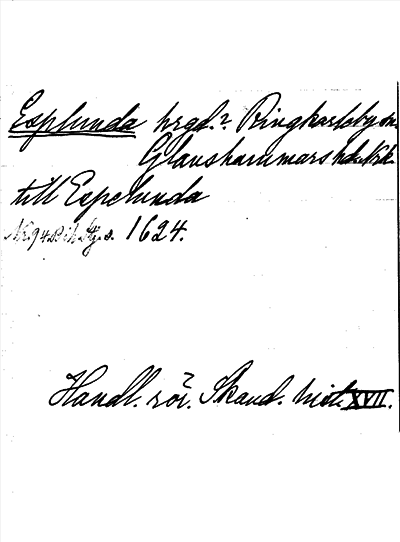 Esplunda hrgd.? Ringkarleby sn.
Glanshammars hd. Nrk.
till Espelunda
Nr 94 Bih. Hj. s. 1624.
Handl. rör. Skand. hist. XVII.